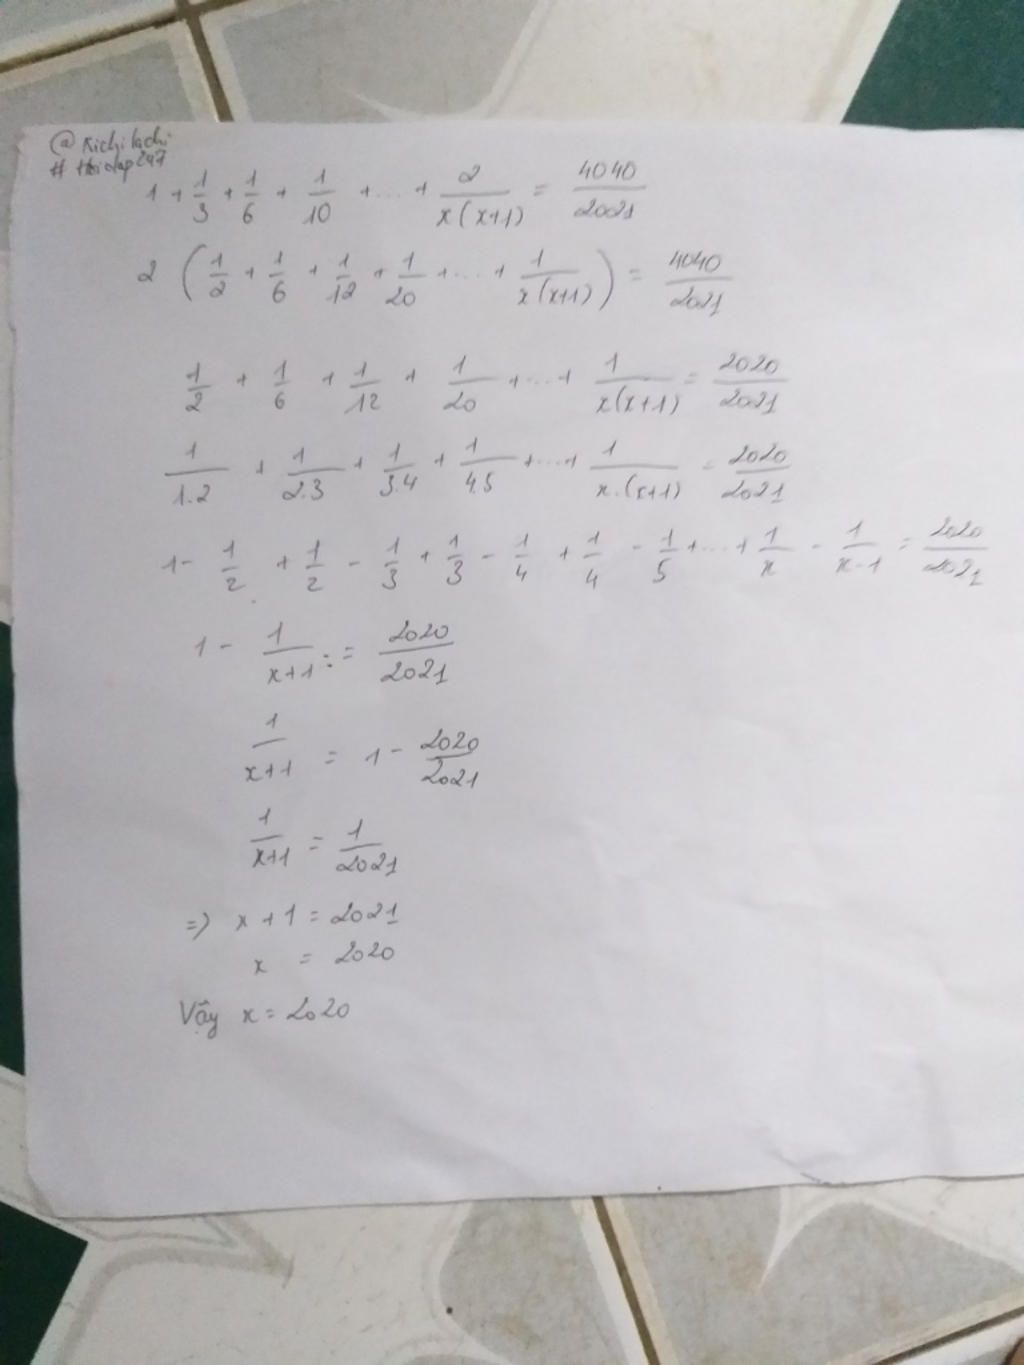 @Kichilachi
# Hoidap247
1 + 1/3 + 1/6 + 1/10 + ... + 2/x(x+1) = 4040/2021
2 (1/2 + 1/6 + 1/12 + 1/20 + ... + 1/x(x+1)) = 4040/2021
1/2 + 1/6 + 1/12 + 1/20 + ... + 1/x(x+1) = 2020/2021
1/1.2 + 1/2.3 + 1/3.4 + 1/4.5 + ... + 1/x.(x+1) = 2020/2021
1 - 1/2 + 1/2 - 1/3 + 1/3 - 1/4 + 1/4 - 1/5 + ... + 1/x - 1/x-1 = 2020/2021
1 - 1/x+1 := 2020/2021
1/x+1 = 1 - 2020/2021
1/x+1 = 1/2021
=> x + 1 = 2021
x = 2020
Vậy x = 2020